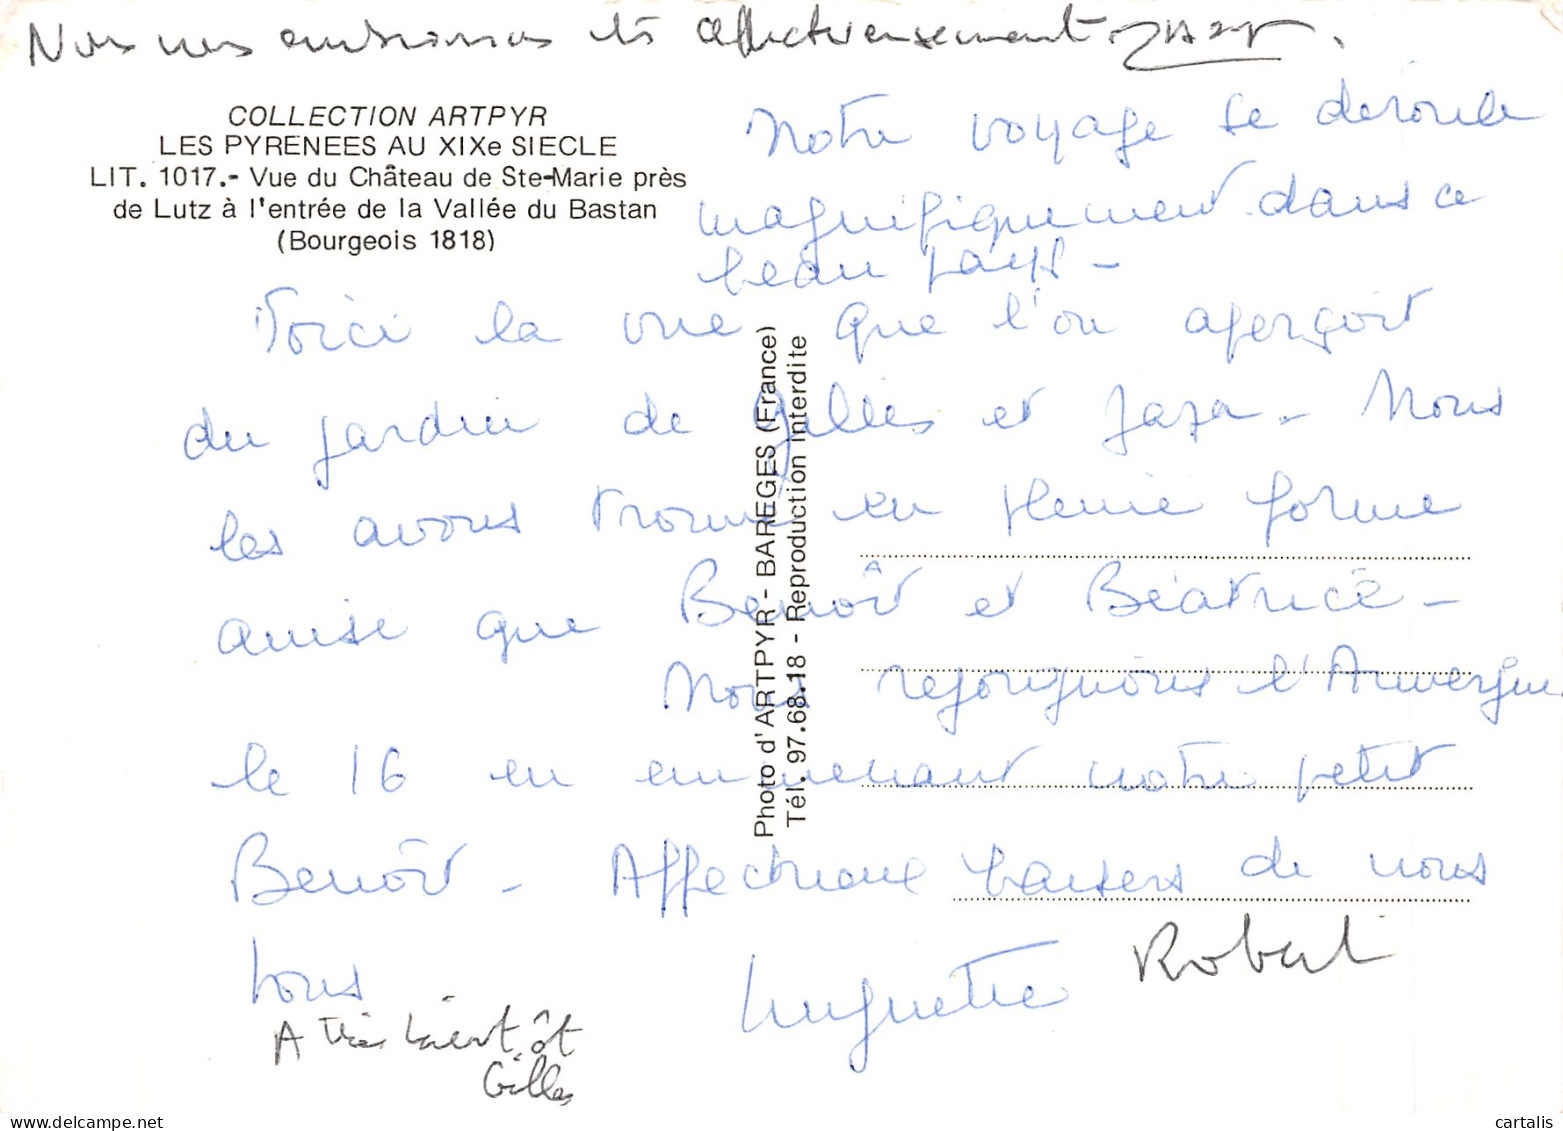 Nous vous embrassons très affectueusement
COLLECTION ARTPYR
LES PYRENEES AU XIXe SIECLE
LIT. 1017.- Vue du Château de Ste-Marie près
de Lutz à l'entrée de la Vallée du Bastan
(Bourgeois 1818)
Notre voyage se déroule
magnifiquement dans ce
beau pays -
Voici la vue que l'on aperçoit
du jardin de Gilles et - Nous
les avons trouvé en pleine forme
ainsi que Benoît et Béatrice -
Nous rejoignons l'Auvergne
le 16 en emmenant notre petit
Benoît - Affectueux baisers de nous
tous
Huguette
Robert
A très bientôt
Gilles
Photo d'ARTPYR - BAREGES (France)
Tél. 97.68.18 - Reproduction interdite
cartalis